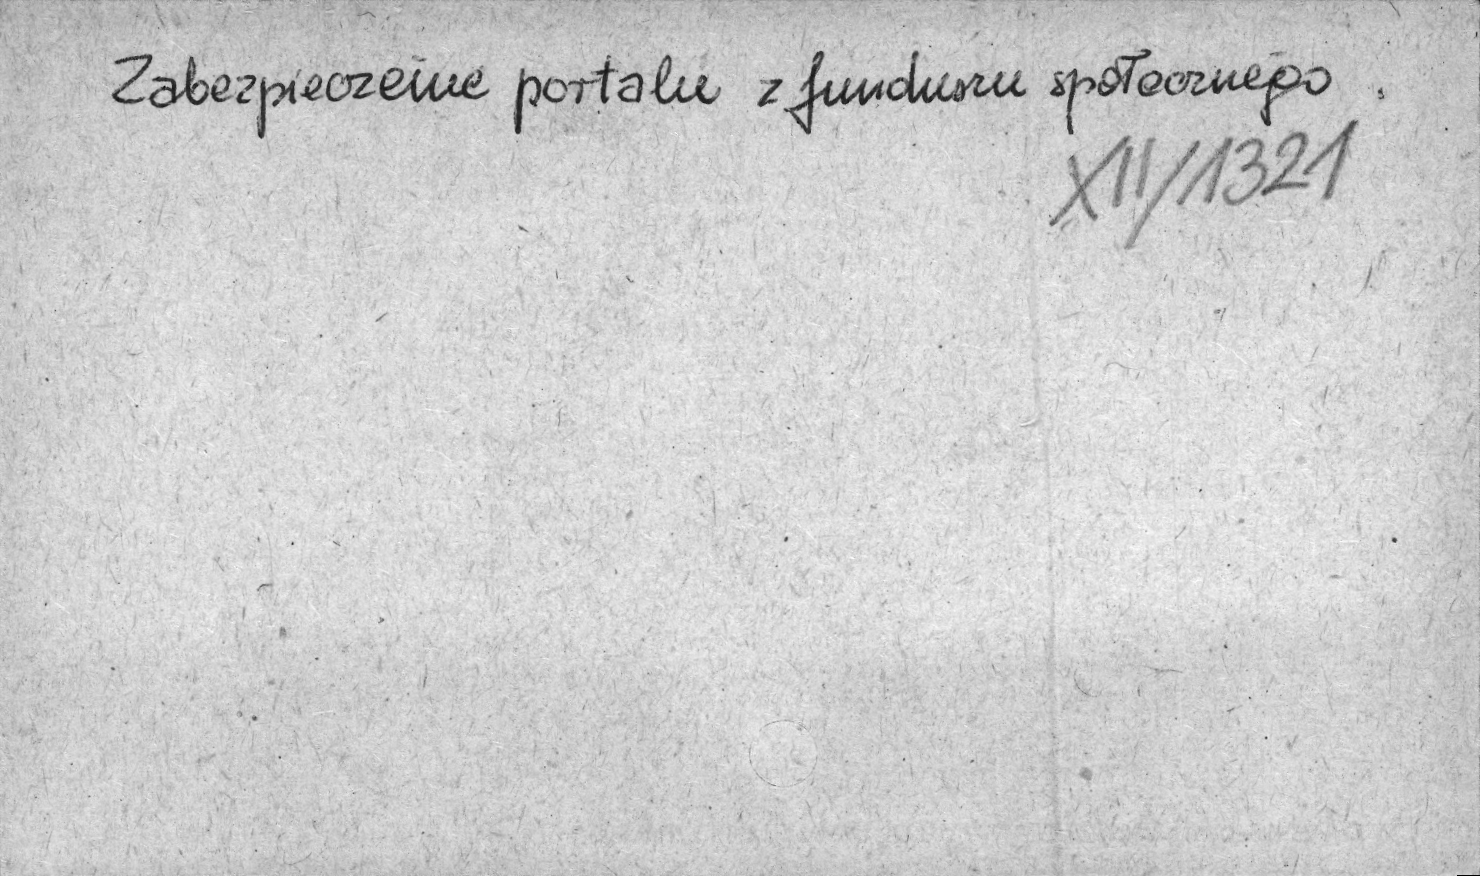 Zabezpieczenie portalu z funduszu społecznego.
XII/1321